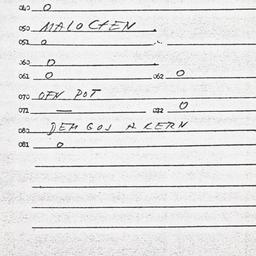 040 O
050 MALOCHEN
052 O
060 O
061 O 062 O
070 OFN POT
071 — 072 O
080 DEM GOJ A KERN
081 O